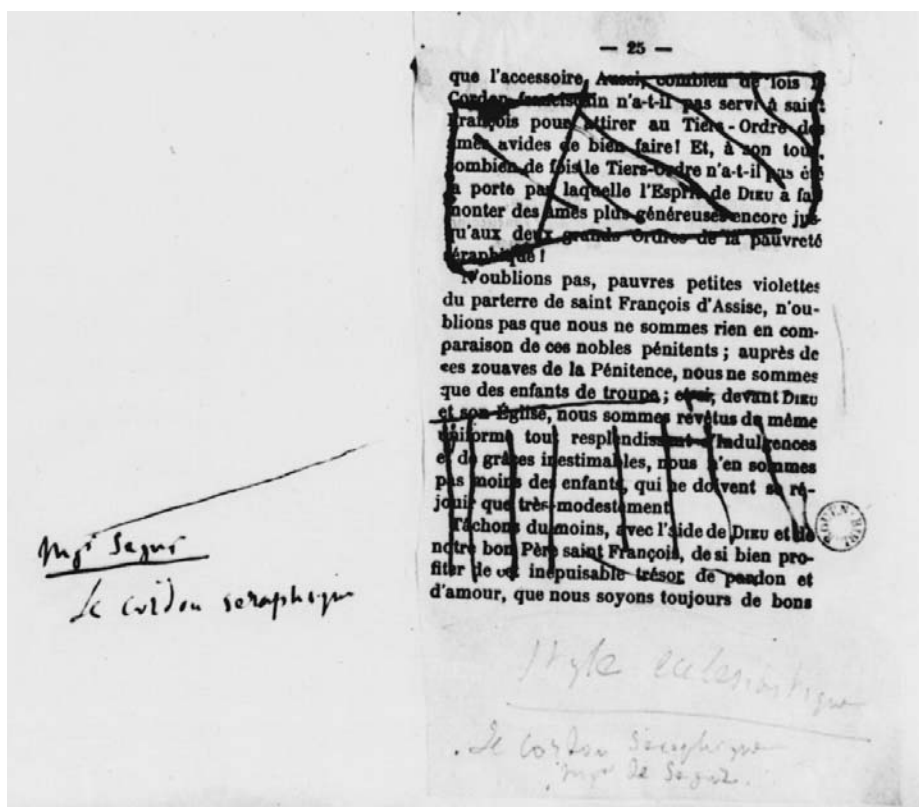 — 25 —
que l'accessoire. Aussi, combien de fois le
Cordon franciscain n'a-t-il pas servi à saint
François pour attirer au Tiers-Ordre des
âmes avides de bien faire! Et, à son tour,
combien de fois le Tiers-Ordre n'a-t-il pas été
la porte par laquelle l'Esprit de DIEU a fait
monter des âmes plus généreuses encore jus-
qu'aux deux grands Ordres de la pauvreté
séraphique!
N'oublions pas, pauvres petites violettes
du parterre de saint François d'Assise, n'ou-
blions pas que nous ne sommes rien en com-
paraison de ces nobles pénitents; auprès de
ces zouaves de la Pénitence, nous ne sommes
que des enfants de troupe; et si, devant DIEU
et son Église, nous sommes revêtus du même
uniforme tout resplendissant d'Indulgences
et de grâces inestimables, nous n'en sommes
pas moins des enfants, qui ne doivent se ré-
jouir que très-modestement.
Tâchons du moins, avec l'aide de DIEU et de
notre bon Père saint François, de si bien pro-
fiter de cet inépuisable trésor de pardon et
d'amour, que nous soyons toujours de bons
Mgr Segur
Le cordon seraphique
Style eclesiastique
Le cordon seraphique
Mgr de Segur.